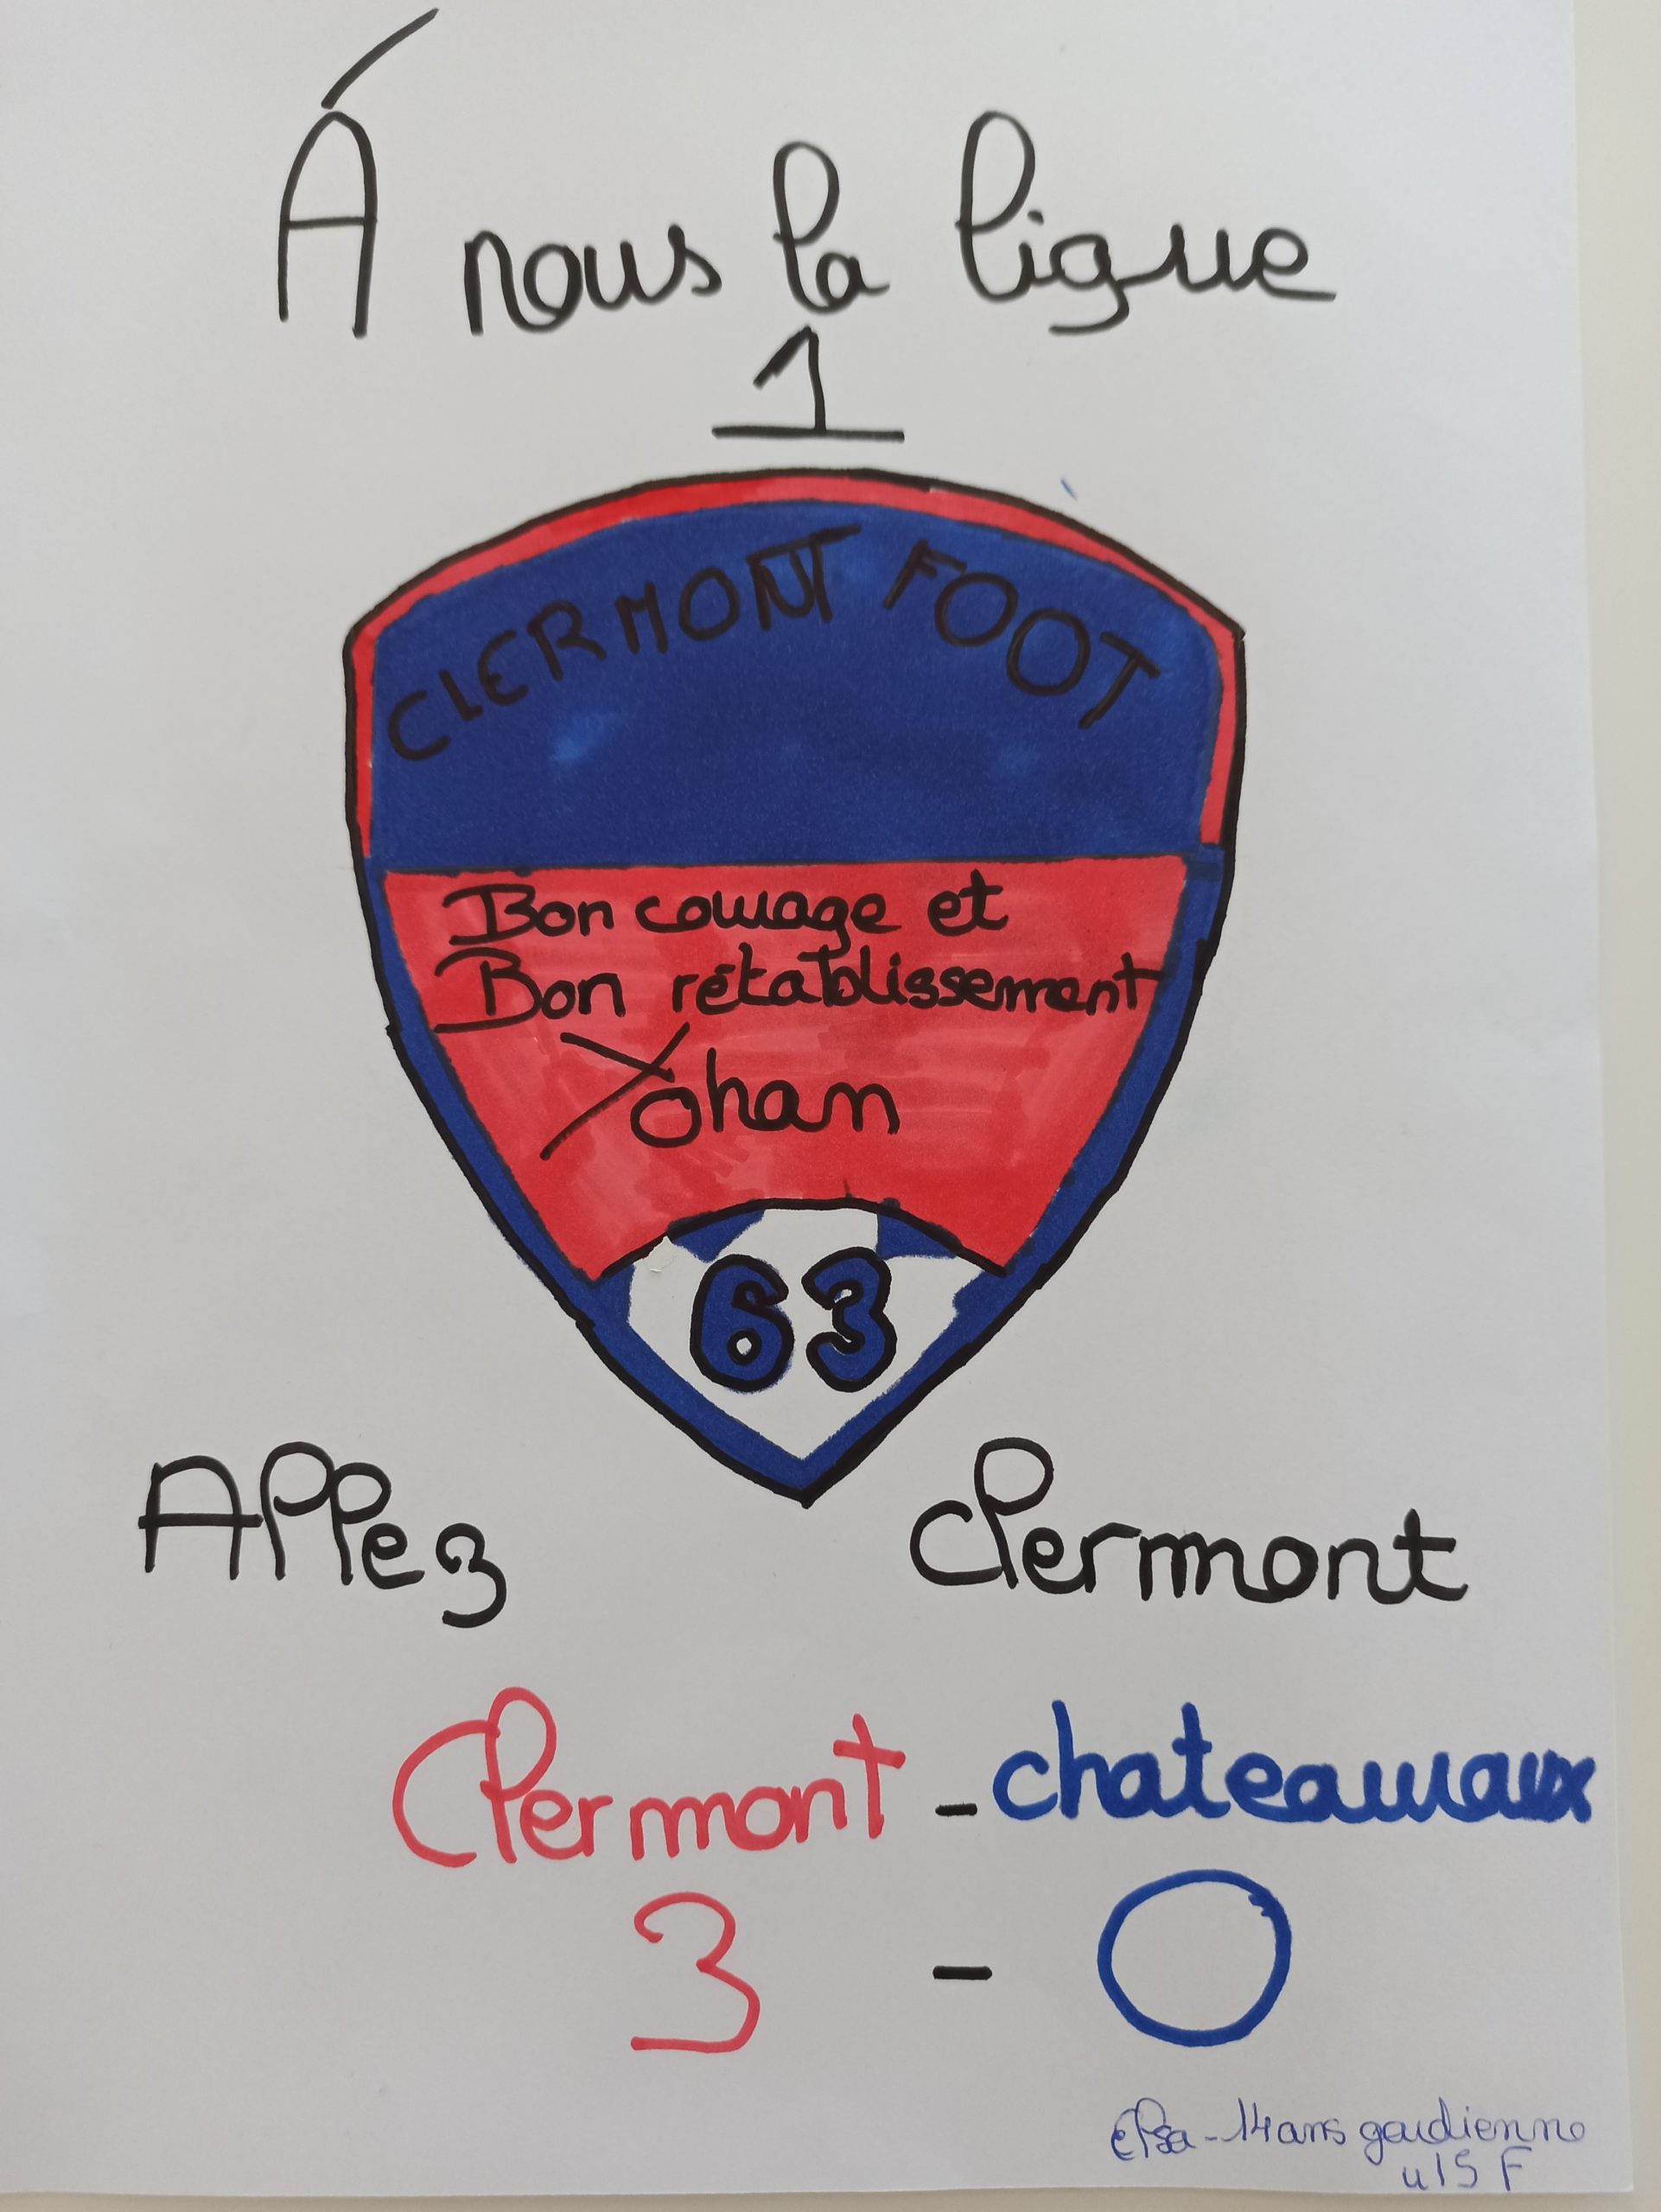 Á nous la ligue
1
CLERMONT FOOT
Bon courage et
Bon rétablissement
Yohan
63
Allez Clermont
Clermont - chateauraux
3 - 0
elsa - 14 ans gardienne
u15 F